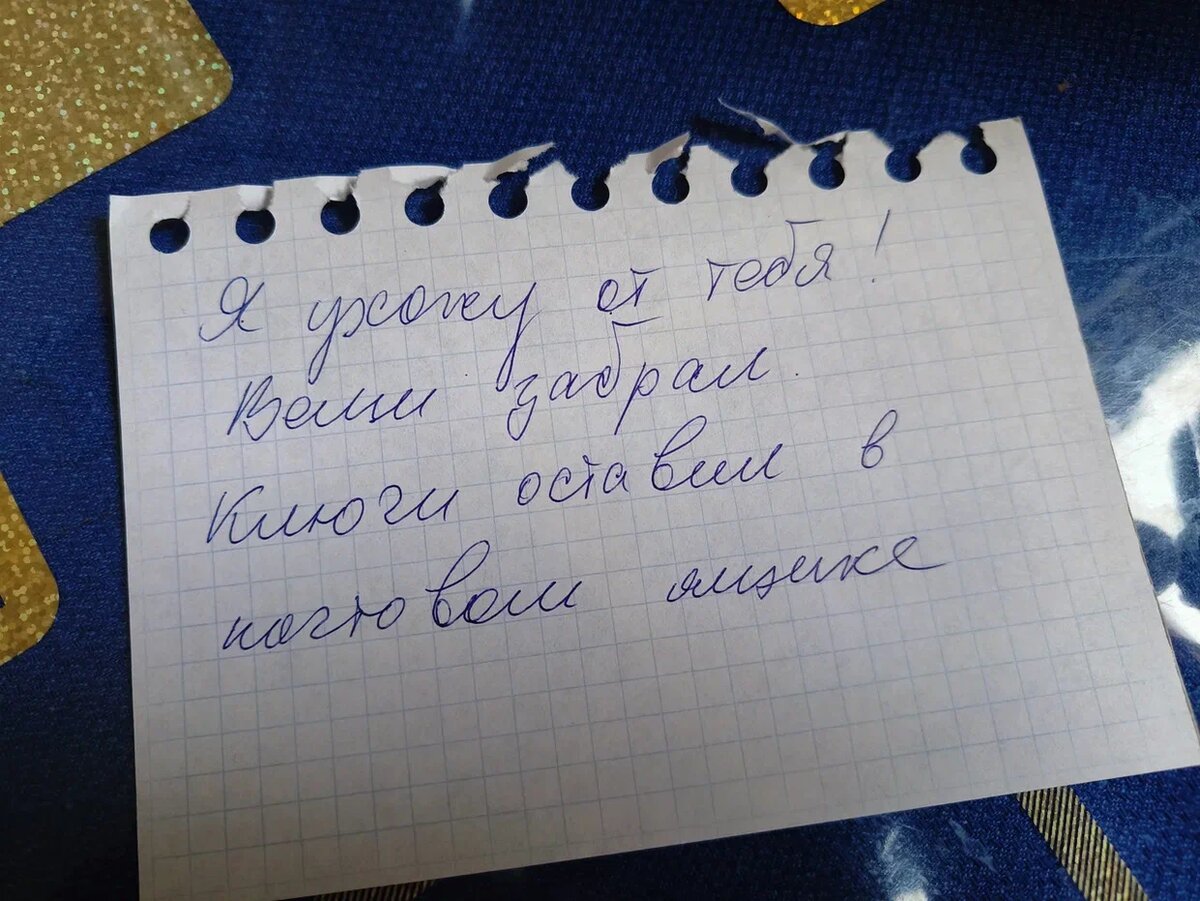 Я ухожу от тебя!
Вещи забрал.
Ключи оставил в
почтовом ящике